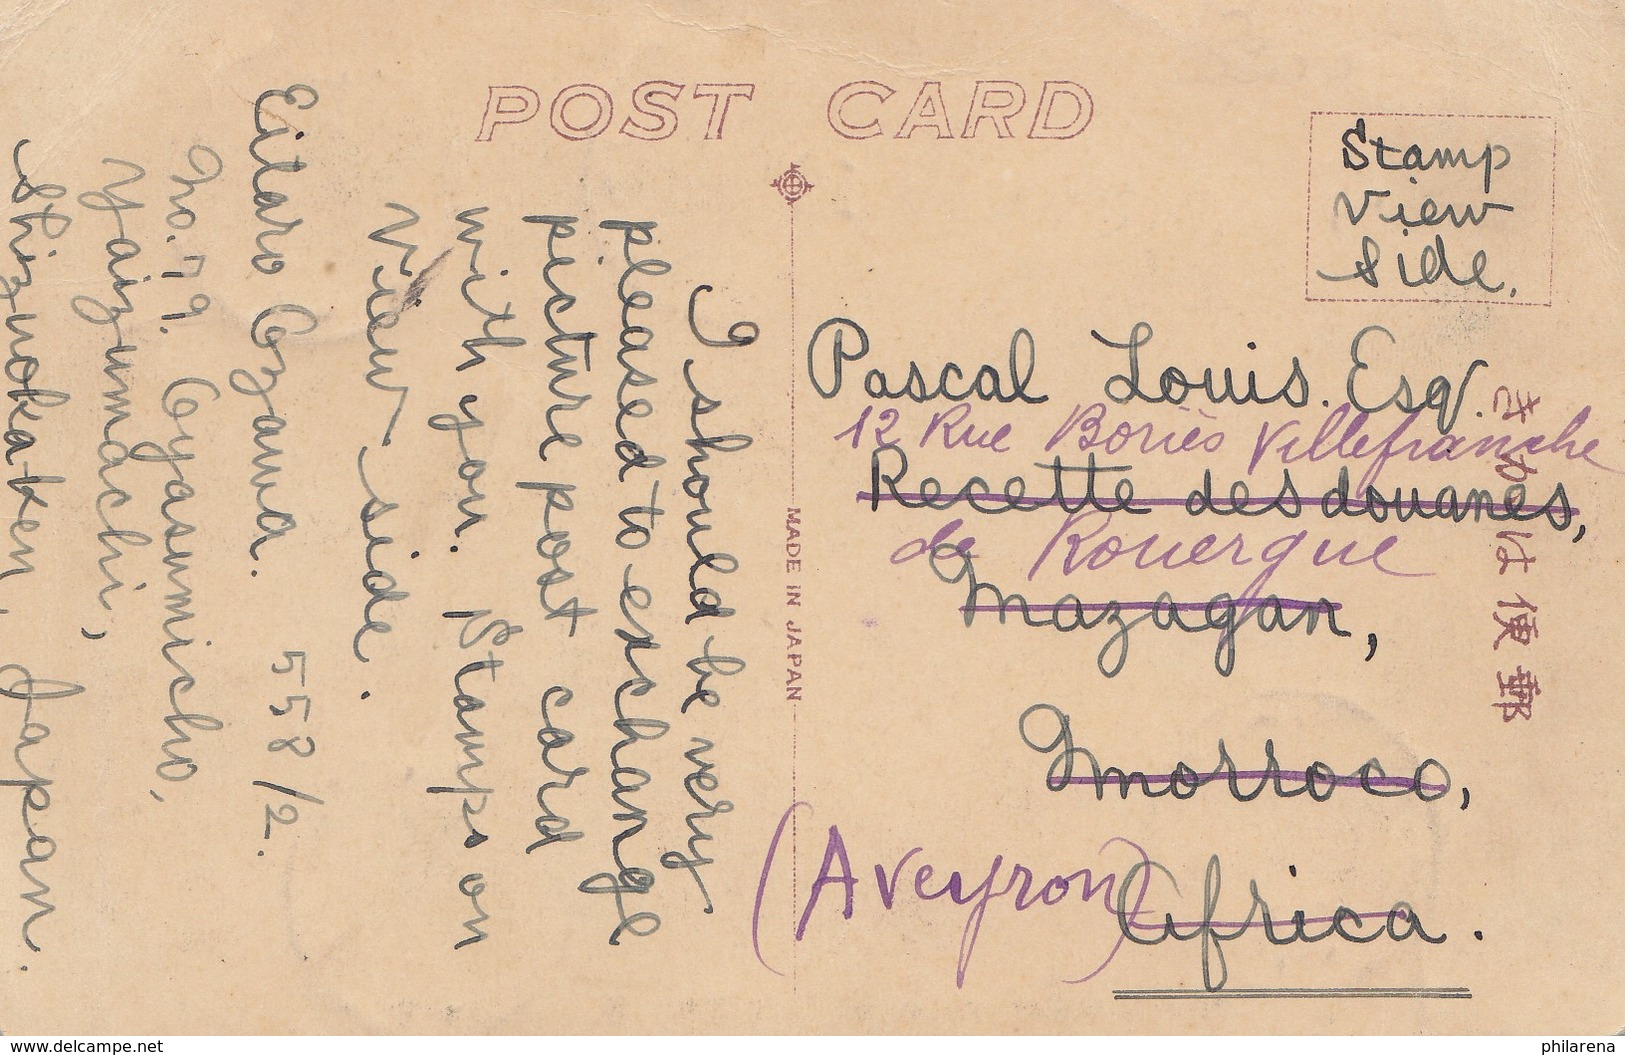 POST CARD
Stamp
View
side.
I should be very
pleased to exchange
picture post card
with you. Stamps on
View side.
Eitaro Ozawa. 558/2.
No. 79. Oyasumicho,
Yaizumachi,
Shizuokaken, Japan.
MADE IN JAPAN
Pascal Louis. Esq.
12 Rue Boriès Villefranche
Recette des douanes,
de Rouergue
Mazagan,
Morroco,
(Aveyron)
Africa.
郵便はがき
www.delcampe.net
philarena